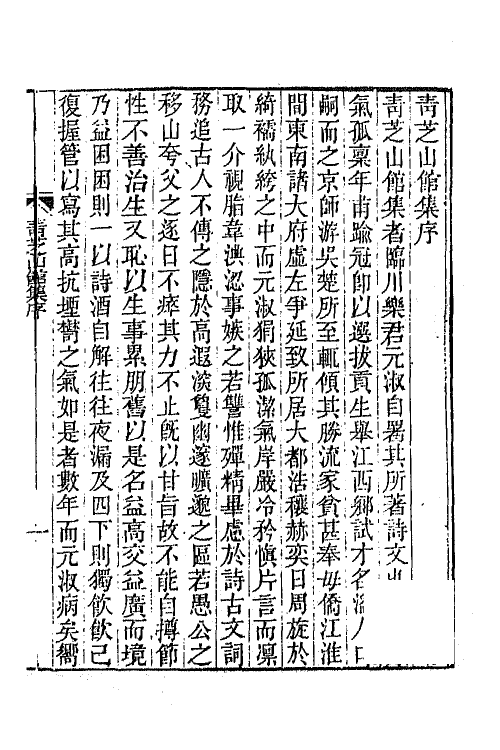 青芝山館集序
青芝山館集者臨川樂君元淑自署其所著詩文也
氣孤稟年甫踰冠卽以選拔貢生舉江西鄉試才名滿人口
嗣而之京師游吳楚所至輒傾其勝流家貧甚奉毋僑江淮
間東南諸大府虛左爭延致所居大都浩穰赫奕日周旋於
綺襦紈絝之中而元淑狷狹孤潔氣岸嚴冷矜愼片言而凜
取一介視脂韋澳涊事嫉之若讐惟殫精畢慮於詩古文詞
務追古人不傳之隱於高遐淡敻幽邃曠邈之區若愚公之
移山夸父之逐日不瘁其力不止旣以甘旨故不能自撙節
性不善治生又恥以生事累朋舊以是名益高交益廣而境
乃益困困則一以詩酒自解往往夜漏及四下則獨飮飮已
復握管以寫其高抗堙鬱之氣如是者數年而元淑病矣嚮
青芝山館集序
一